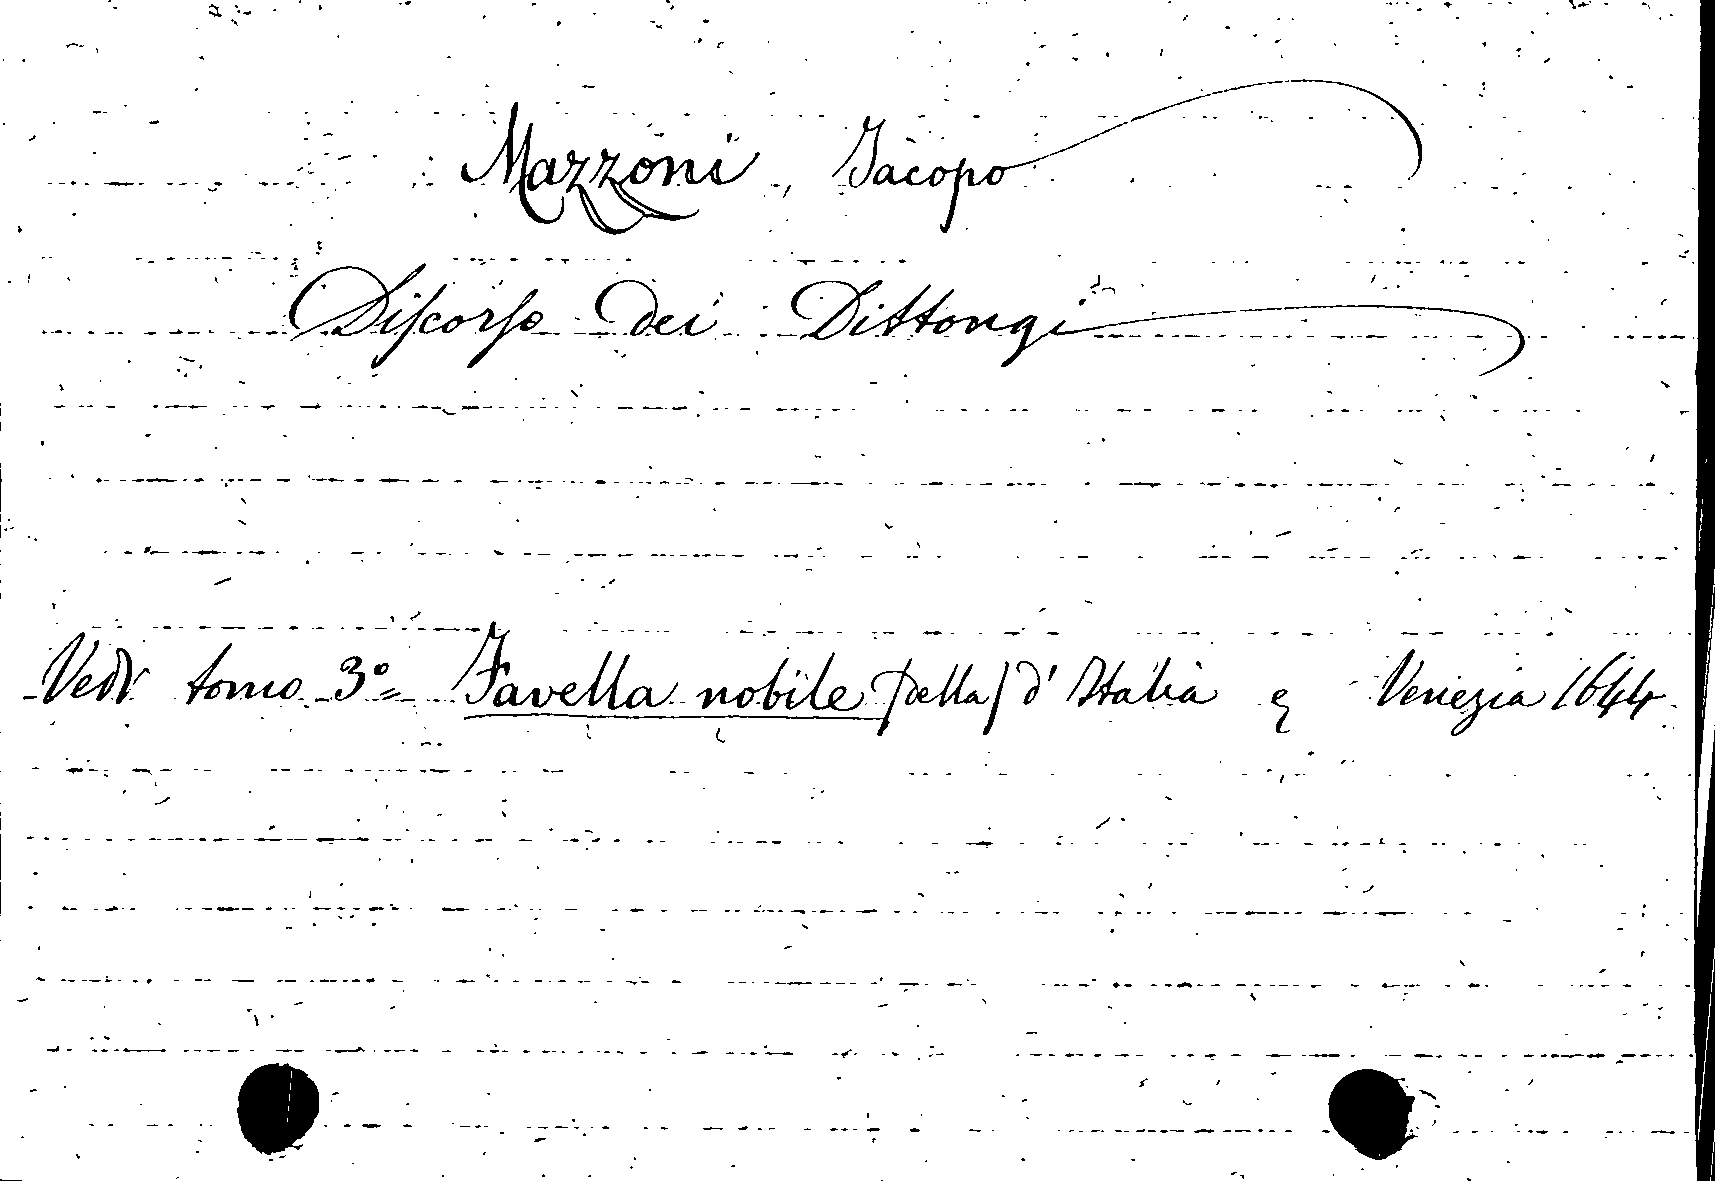 Mazzoni, Jacopo
Diſcorſo dei Dittongi
Vedi tomo 3º Favella nobile (della) d' Italia & Venezia 1644